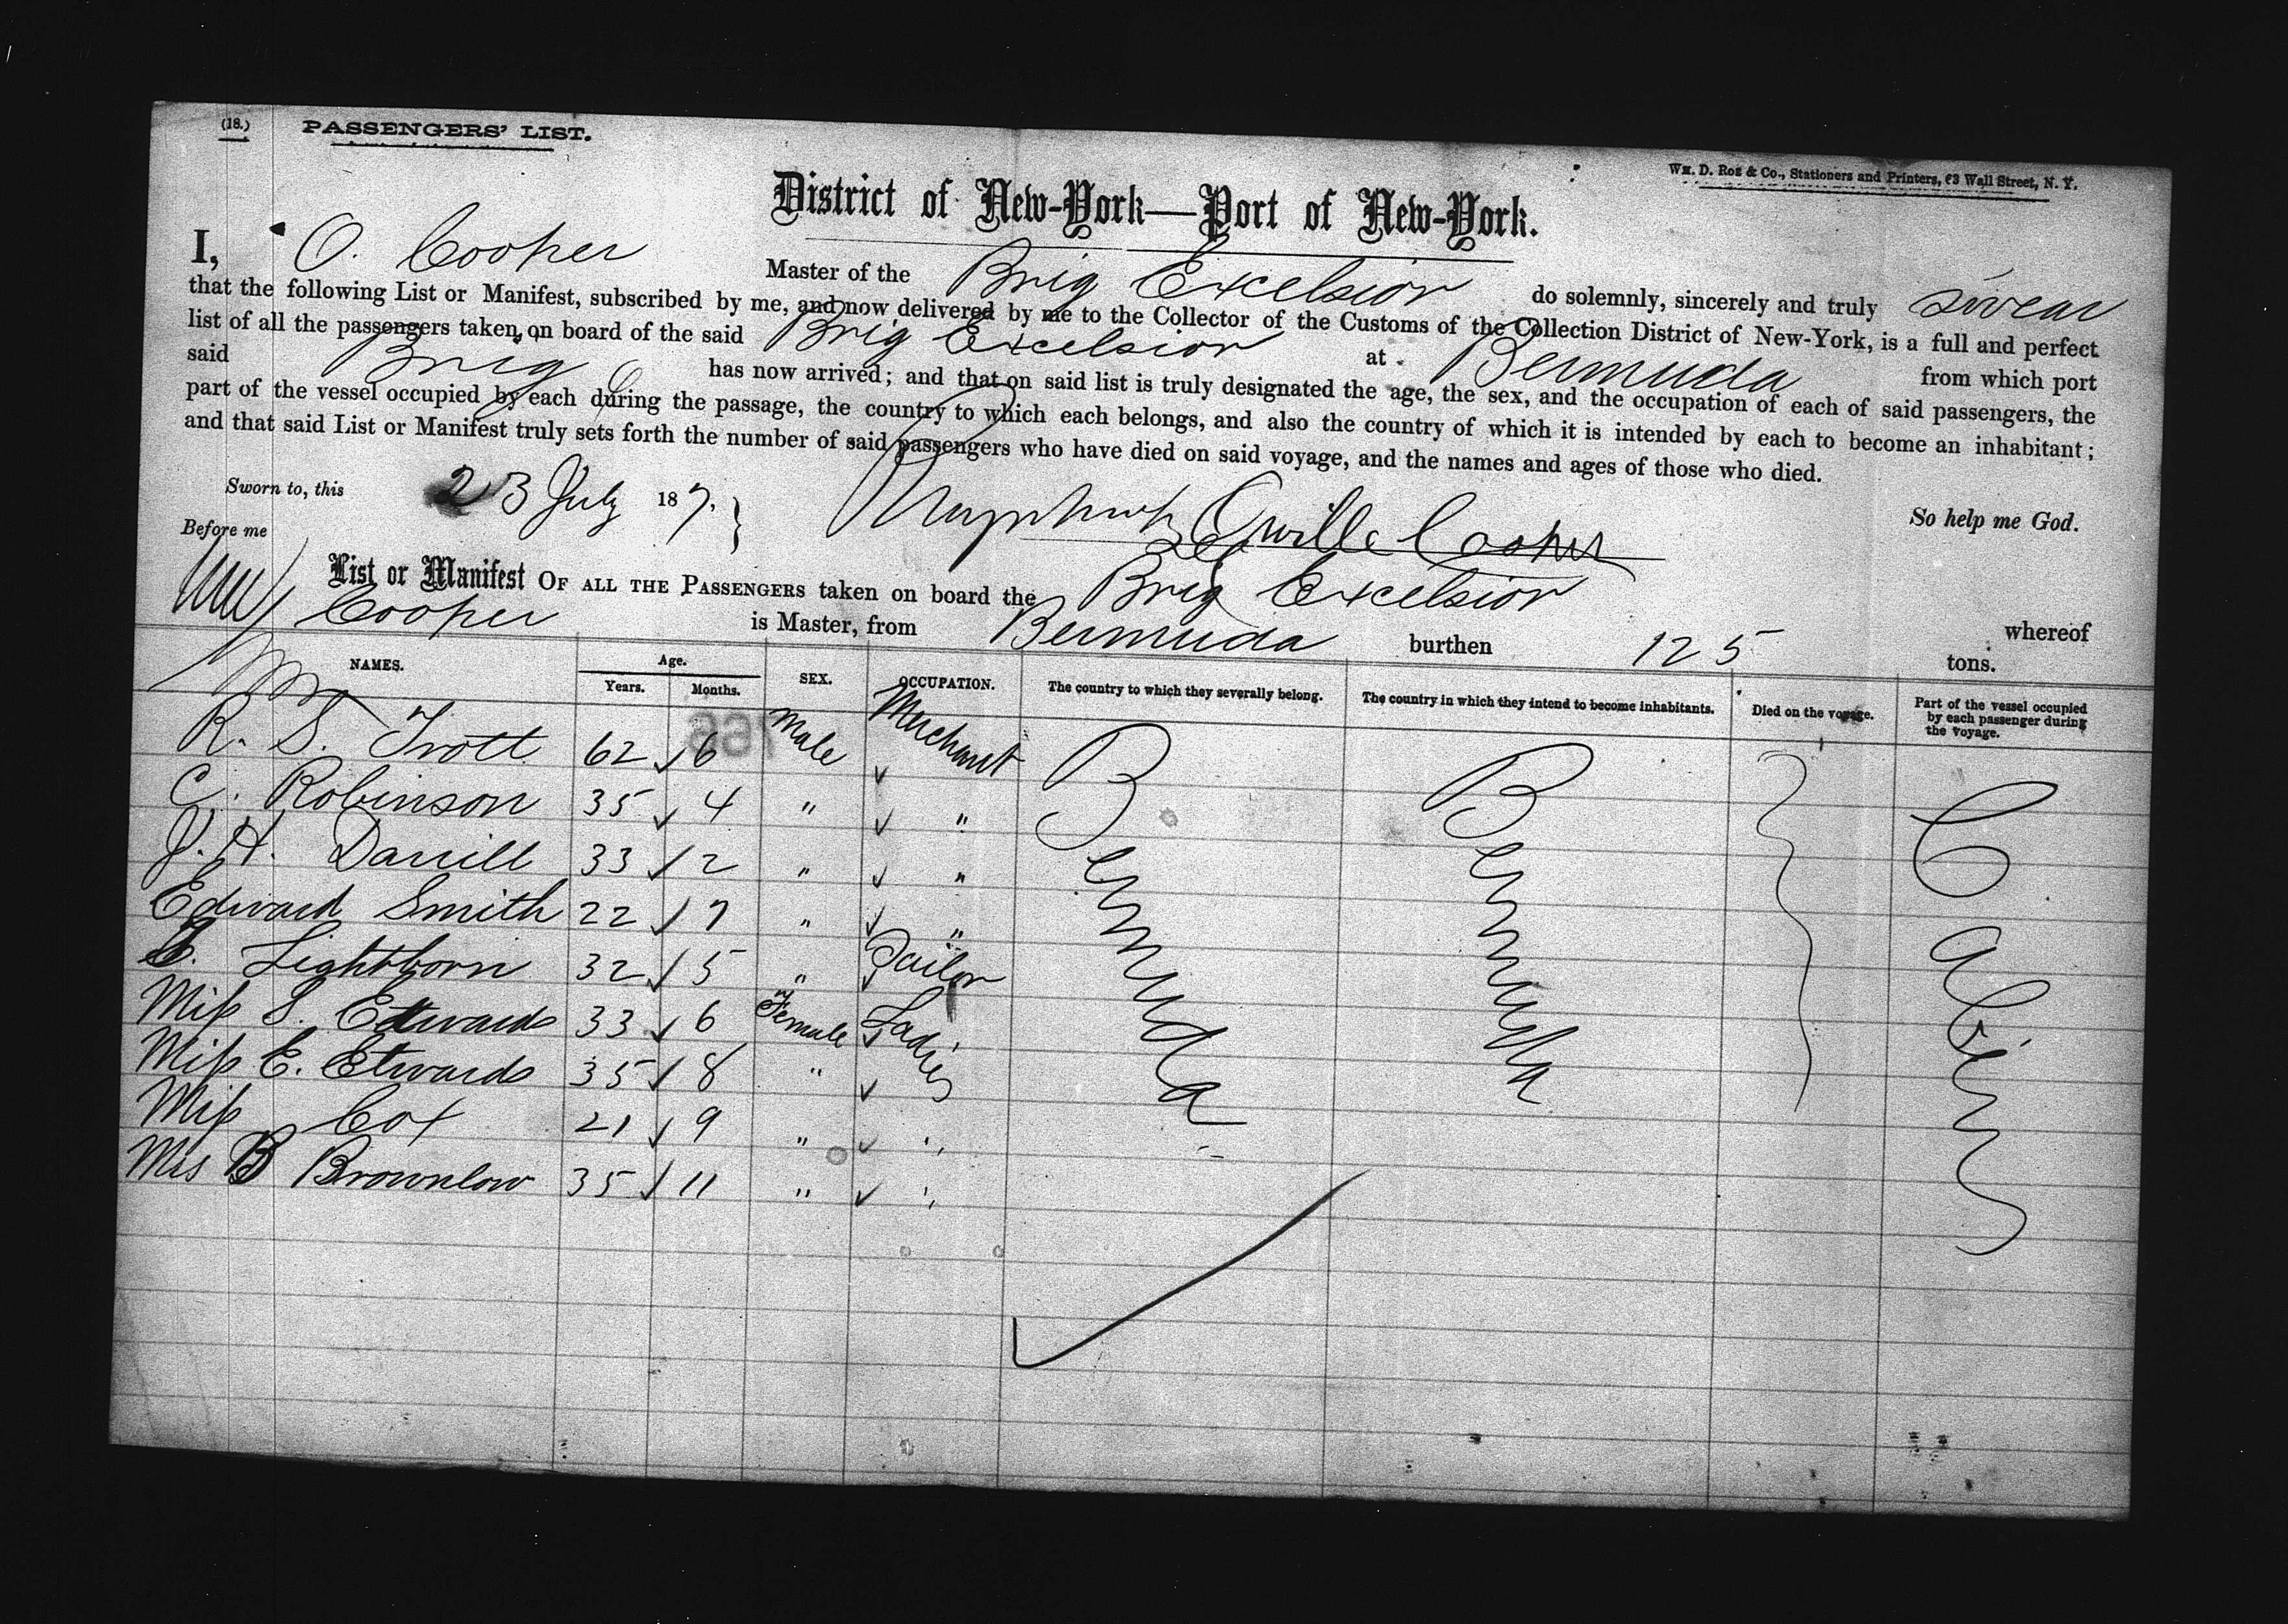 (18.) PASSENGERS' LIST.
Wm. D. Roe & Co., Stationers and Printers, 63 Wall Street, N. Y.
District of New-York—Port of New-York.
I, O. Cooper Master of the Brig Excelsior do solemnly, sincerely and truly swear
that the following List or Manifest, subscribed by me, and now delivered by me to the Collector of the Customs of the Collection District of New-York, is a full and perfect
list of all the passengers taken on board of the said Brig Excelsior at Bermuda from which port
said Brig has now arrived; and that on said list is truly designated the age, the sex, and the occupation of each of said passengers, the
part of the vessel occupied by each during the passage, the country to which each belongs, and also the country of which it is intended by each to become an inhabitant;
and that said List or Manifest truly sets forth the number of said passengers who have died on said voyage, and the names and ages of those who died.
Sworn to, this 23 July 187. } Orville Cooper So help me God.
Before me
List or Manifest OF ALL THE PASSENGERS taken on board the Brig Excelsior whereof
Cooper is Master, from Bermuda burthen 125 tons.
NAMES. Age. Years. Months. SEX. OCCUPATION. The country to which they severally belong. The country in which they intend to become inhabitants. Died on the voyage. Part of the vessel occupied by each passenger during the voyage.
R. S. Trott 62 6 Male Merchant Bermuda Bermuda Cabin
C. Robinson 35 4 " "
J. H. Darrill 33 2 " "
Edward Smith 22 7 " "
Lightborn 32 5 " Tailor
Miss S. Edwards 33 6 Female Ladies
Miss E. Edwards 35 8 "
Miss Cox 21 9 " "
Mrs B Brownlow 35 11 " "